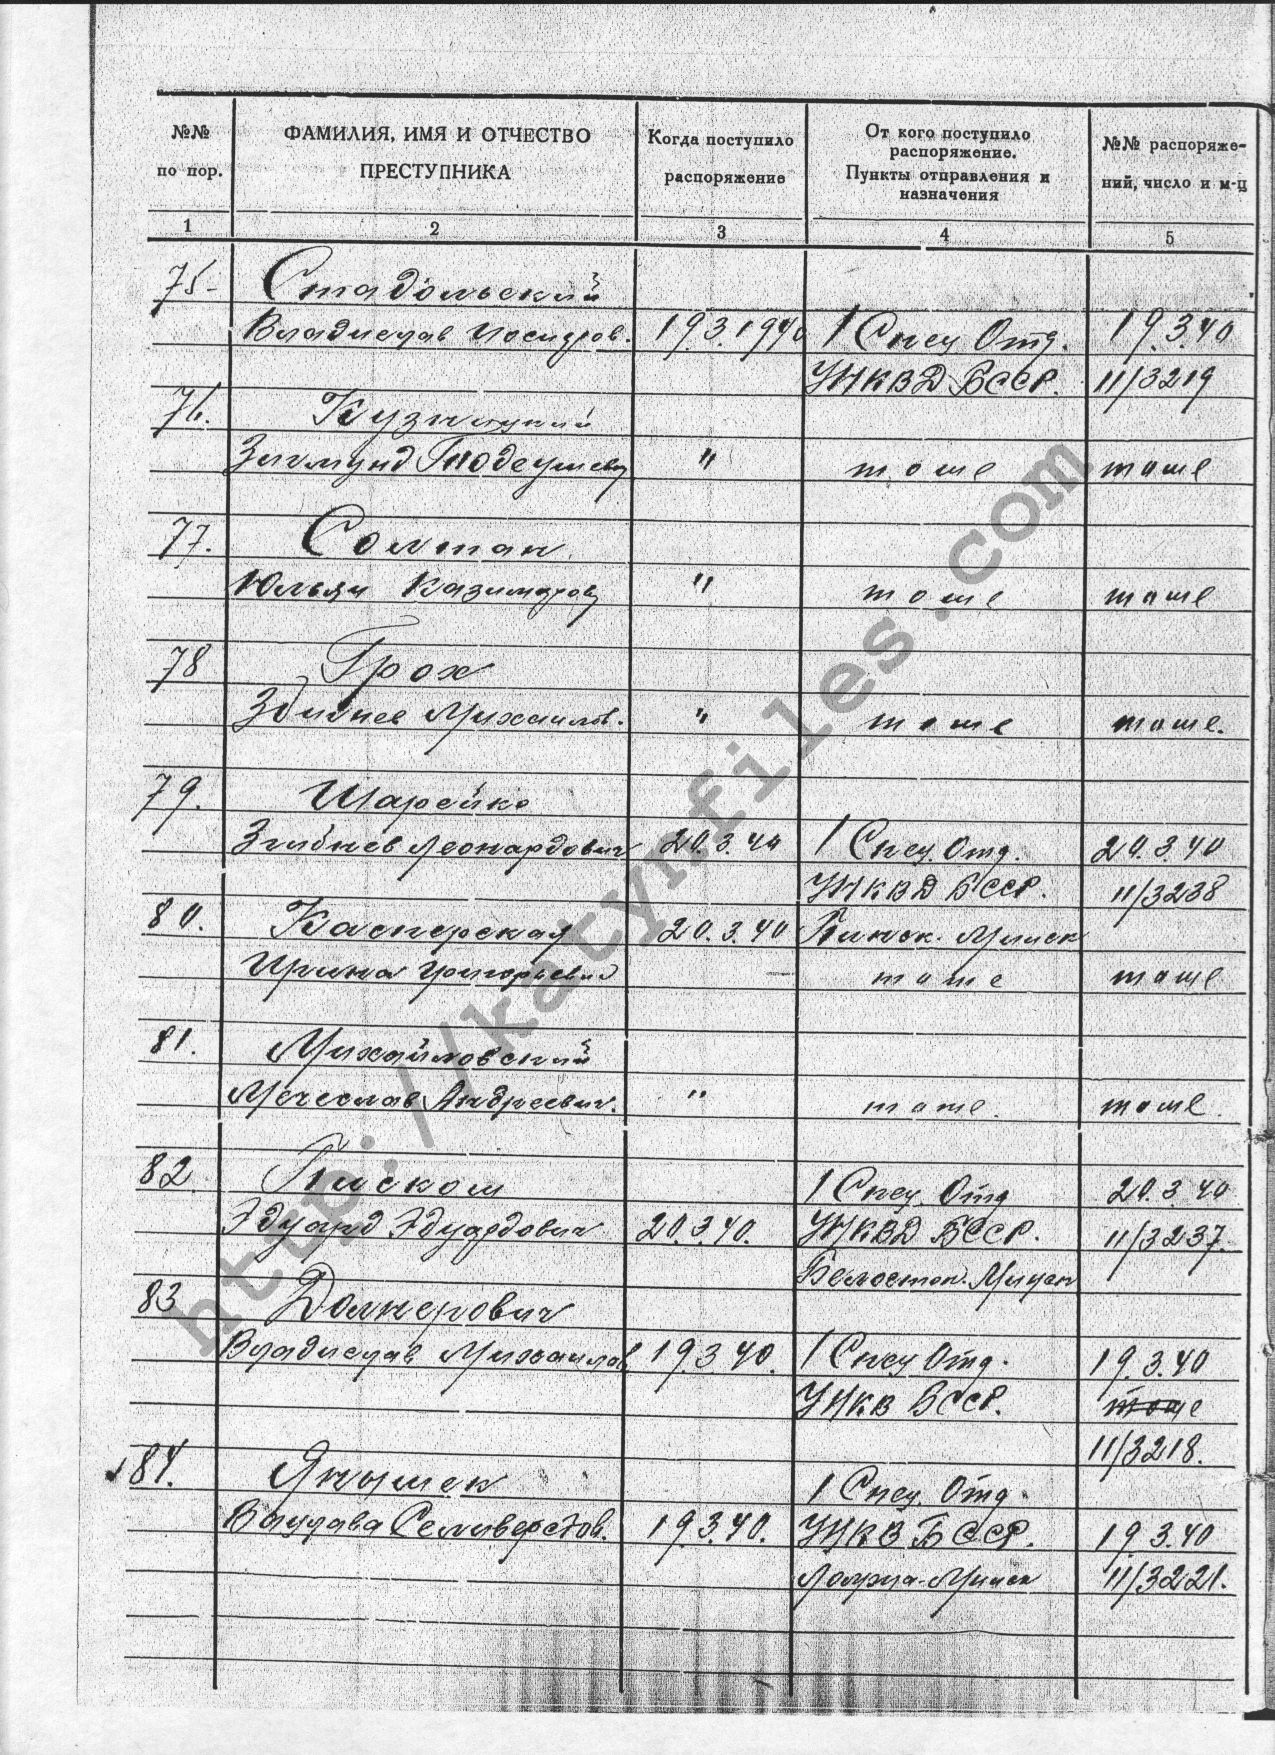 №№ по пор.
ФАМИЛИЯ, ИМЯ И ОТЧЕСТВО ПРЕСТУПНИКА
Когда поступило распоряжение
От кого поступило распоряжение. Пункты отправления и назначения
№№ распоряже-
ний, число и м-ц
1 2 3 4 5
75- Стадольский
Владислав Иосифов. 19.3.1940 1 Спец Отд. 19.3.40
УНКВД БССР. 11/3219
76. Кузницкий
Зигмунд " тоже тоже
77. Солтан
Юльян Казимиров " тоже тоже
78 Грох
Збигнев Михайлов. " тоже тоже.
79. Шарейко
Збигнев Леонардович 20.3.40 1 Спец. Отд. 20.3.40
УНКВД БССР. 11/3238
80. Касперская 20.3.40 Пинск. Минск
Ирина Григорьевна тоже тоже
81. Михайловский
Мечеслав Андреевич. " тоже. тоже.
82 Писком 1 Спец. Отд 20.3.40
Эдуард Эдуардович 20.3.40. УНКВД БССР. 11/3237.
Белосток. Минск
83 Домнерович
Владислав Михайлов 19.3.40. 1 Спец Отд. 19.3.40
УНКВ БССР. тоже
11/3218.
84. Янышек 1 Спец. Отд.
Селиверстов. 19.3.40. УНКВ БССР. 19.3.40
Ломжа-Минск 11/3221.
http://katynfiles.com